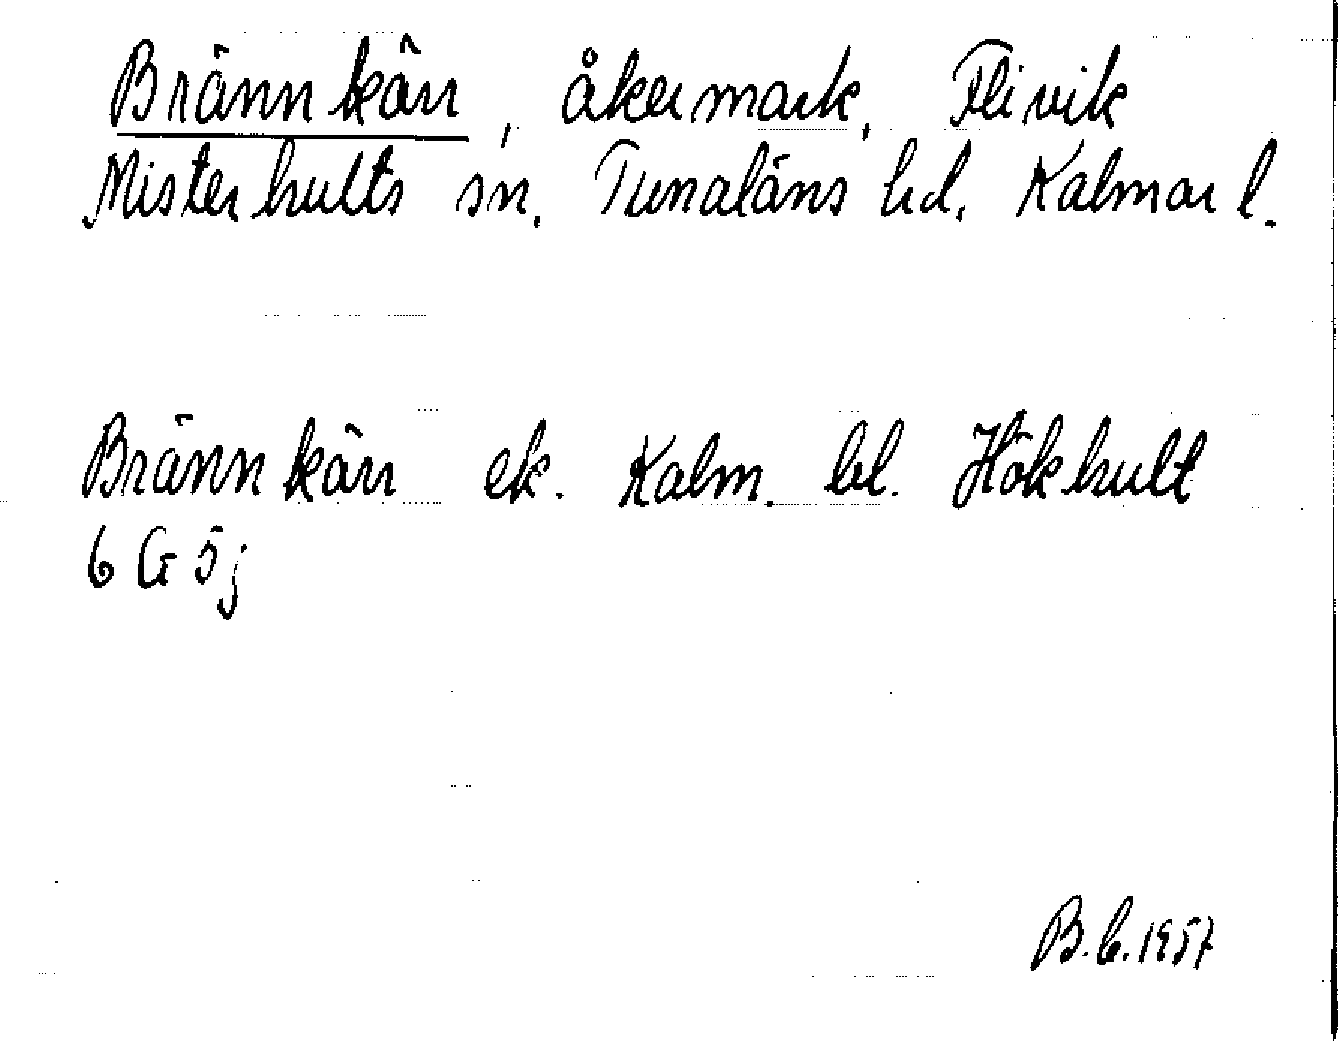 Brännkärr, åkermark, Flivik
Misterhults sn. Tunaläns hd. Kalmar l.
Brännkärr ek. Kalm. bl. Hökhult
6 G 5j
B.C. 1957